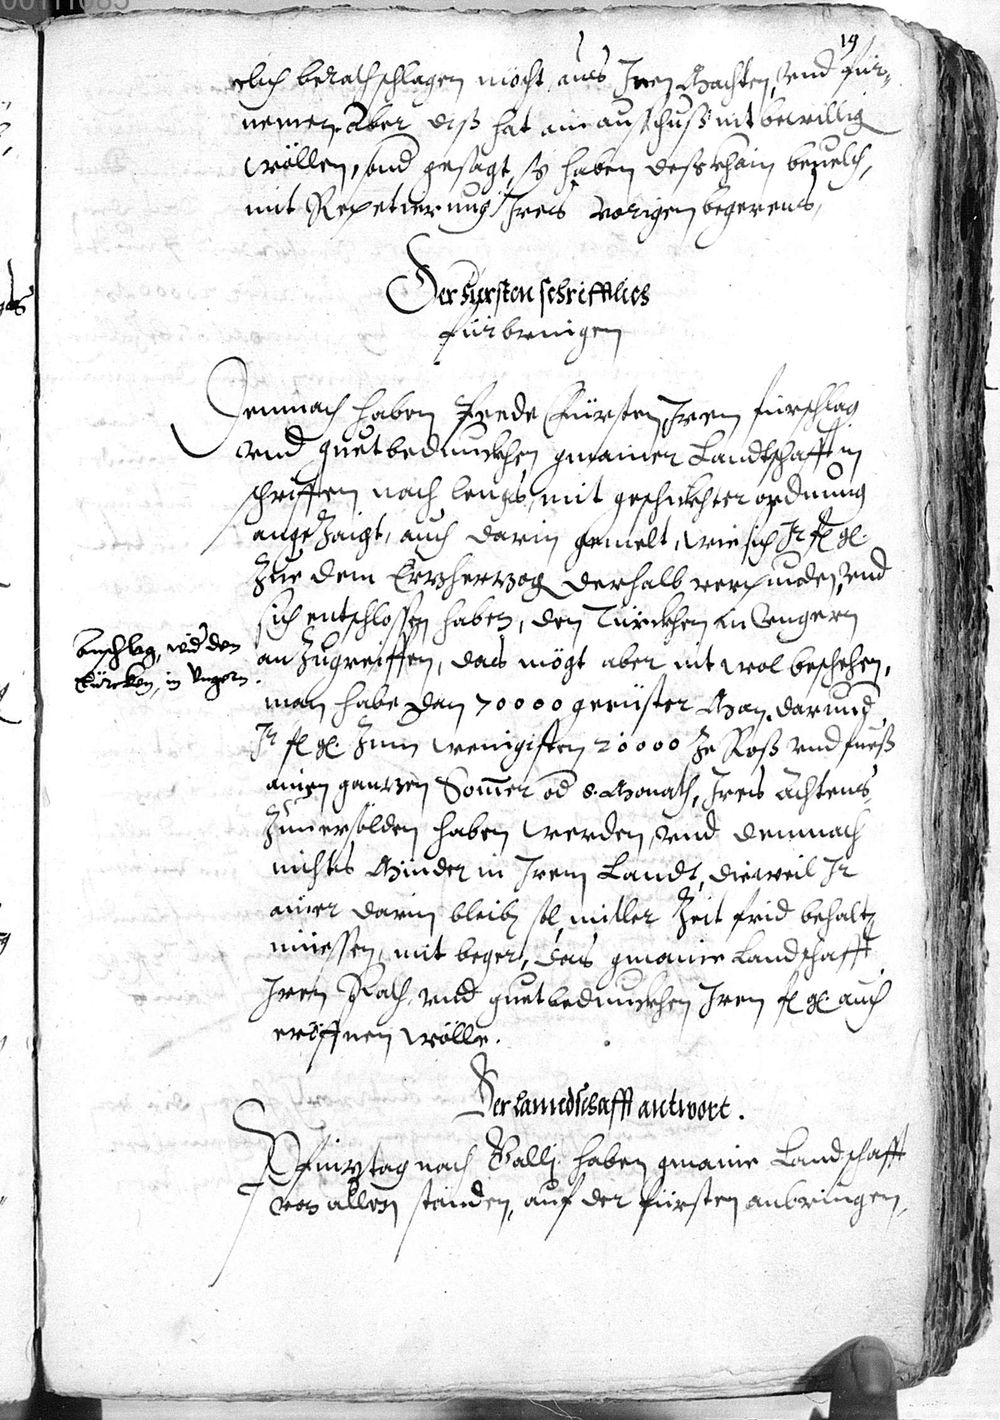 19
lich berathschlagen möcht aus Iren Machten, vnd für-
nemen. Aber diß hat ain ausschuß nit bewillig
wöllen, vnd gesagt, sy haben deß khain beuelch,
mit Repetierung Ires vorigen begerens,
Der Fürsten schrifftlich
fürbringen
Demnach haben beede Fürsten, Irem fürschlag
vnd guetbedunckhen gmainer Landtschafft in
schrifften nach lengs, mit geschickhter ordnung
angezaigt, auch darin gemelt, wie sich Ir fl gl.
zue dem Erzherzog derhalb verpunden, vnd
sich entschlossen haben, den Türckhen in Vngern
anzugreiffen, das mögt aber nit wol beschehen,
Anschlag, wid den
Türcken, in Vngern
man habe dan 70000 gerüster Man. darund
Ir fl gl. zum wenigisten 20000 ze Roß vnd fueß
ainen ganzen Sommer od 8. Monath, Ires Achtens,
zuuersolden haben werden, vnd demnach
nichts Minder in Irem Landt, dieweil Ir
ainer darin bleibn sol, mitler Zeit frid behaltn
müessen, mit beger, das gmaine Landschafft
Iren Rath, vnd guetbedunckhen Iren fl gl. auch
eröffnen wölle.
Der Lanndschafft antwort.
Pfinztag nach Galli haben gmaine Landschafft
von allen ständen, auf der fürsten anbringen,